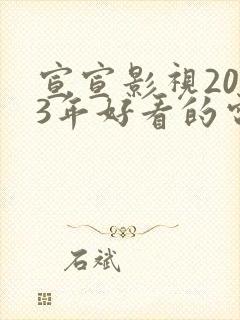 宣宣影視20
3年好看的
石斌